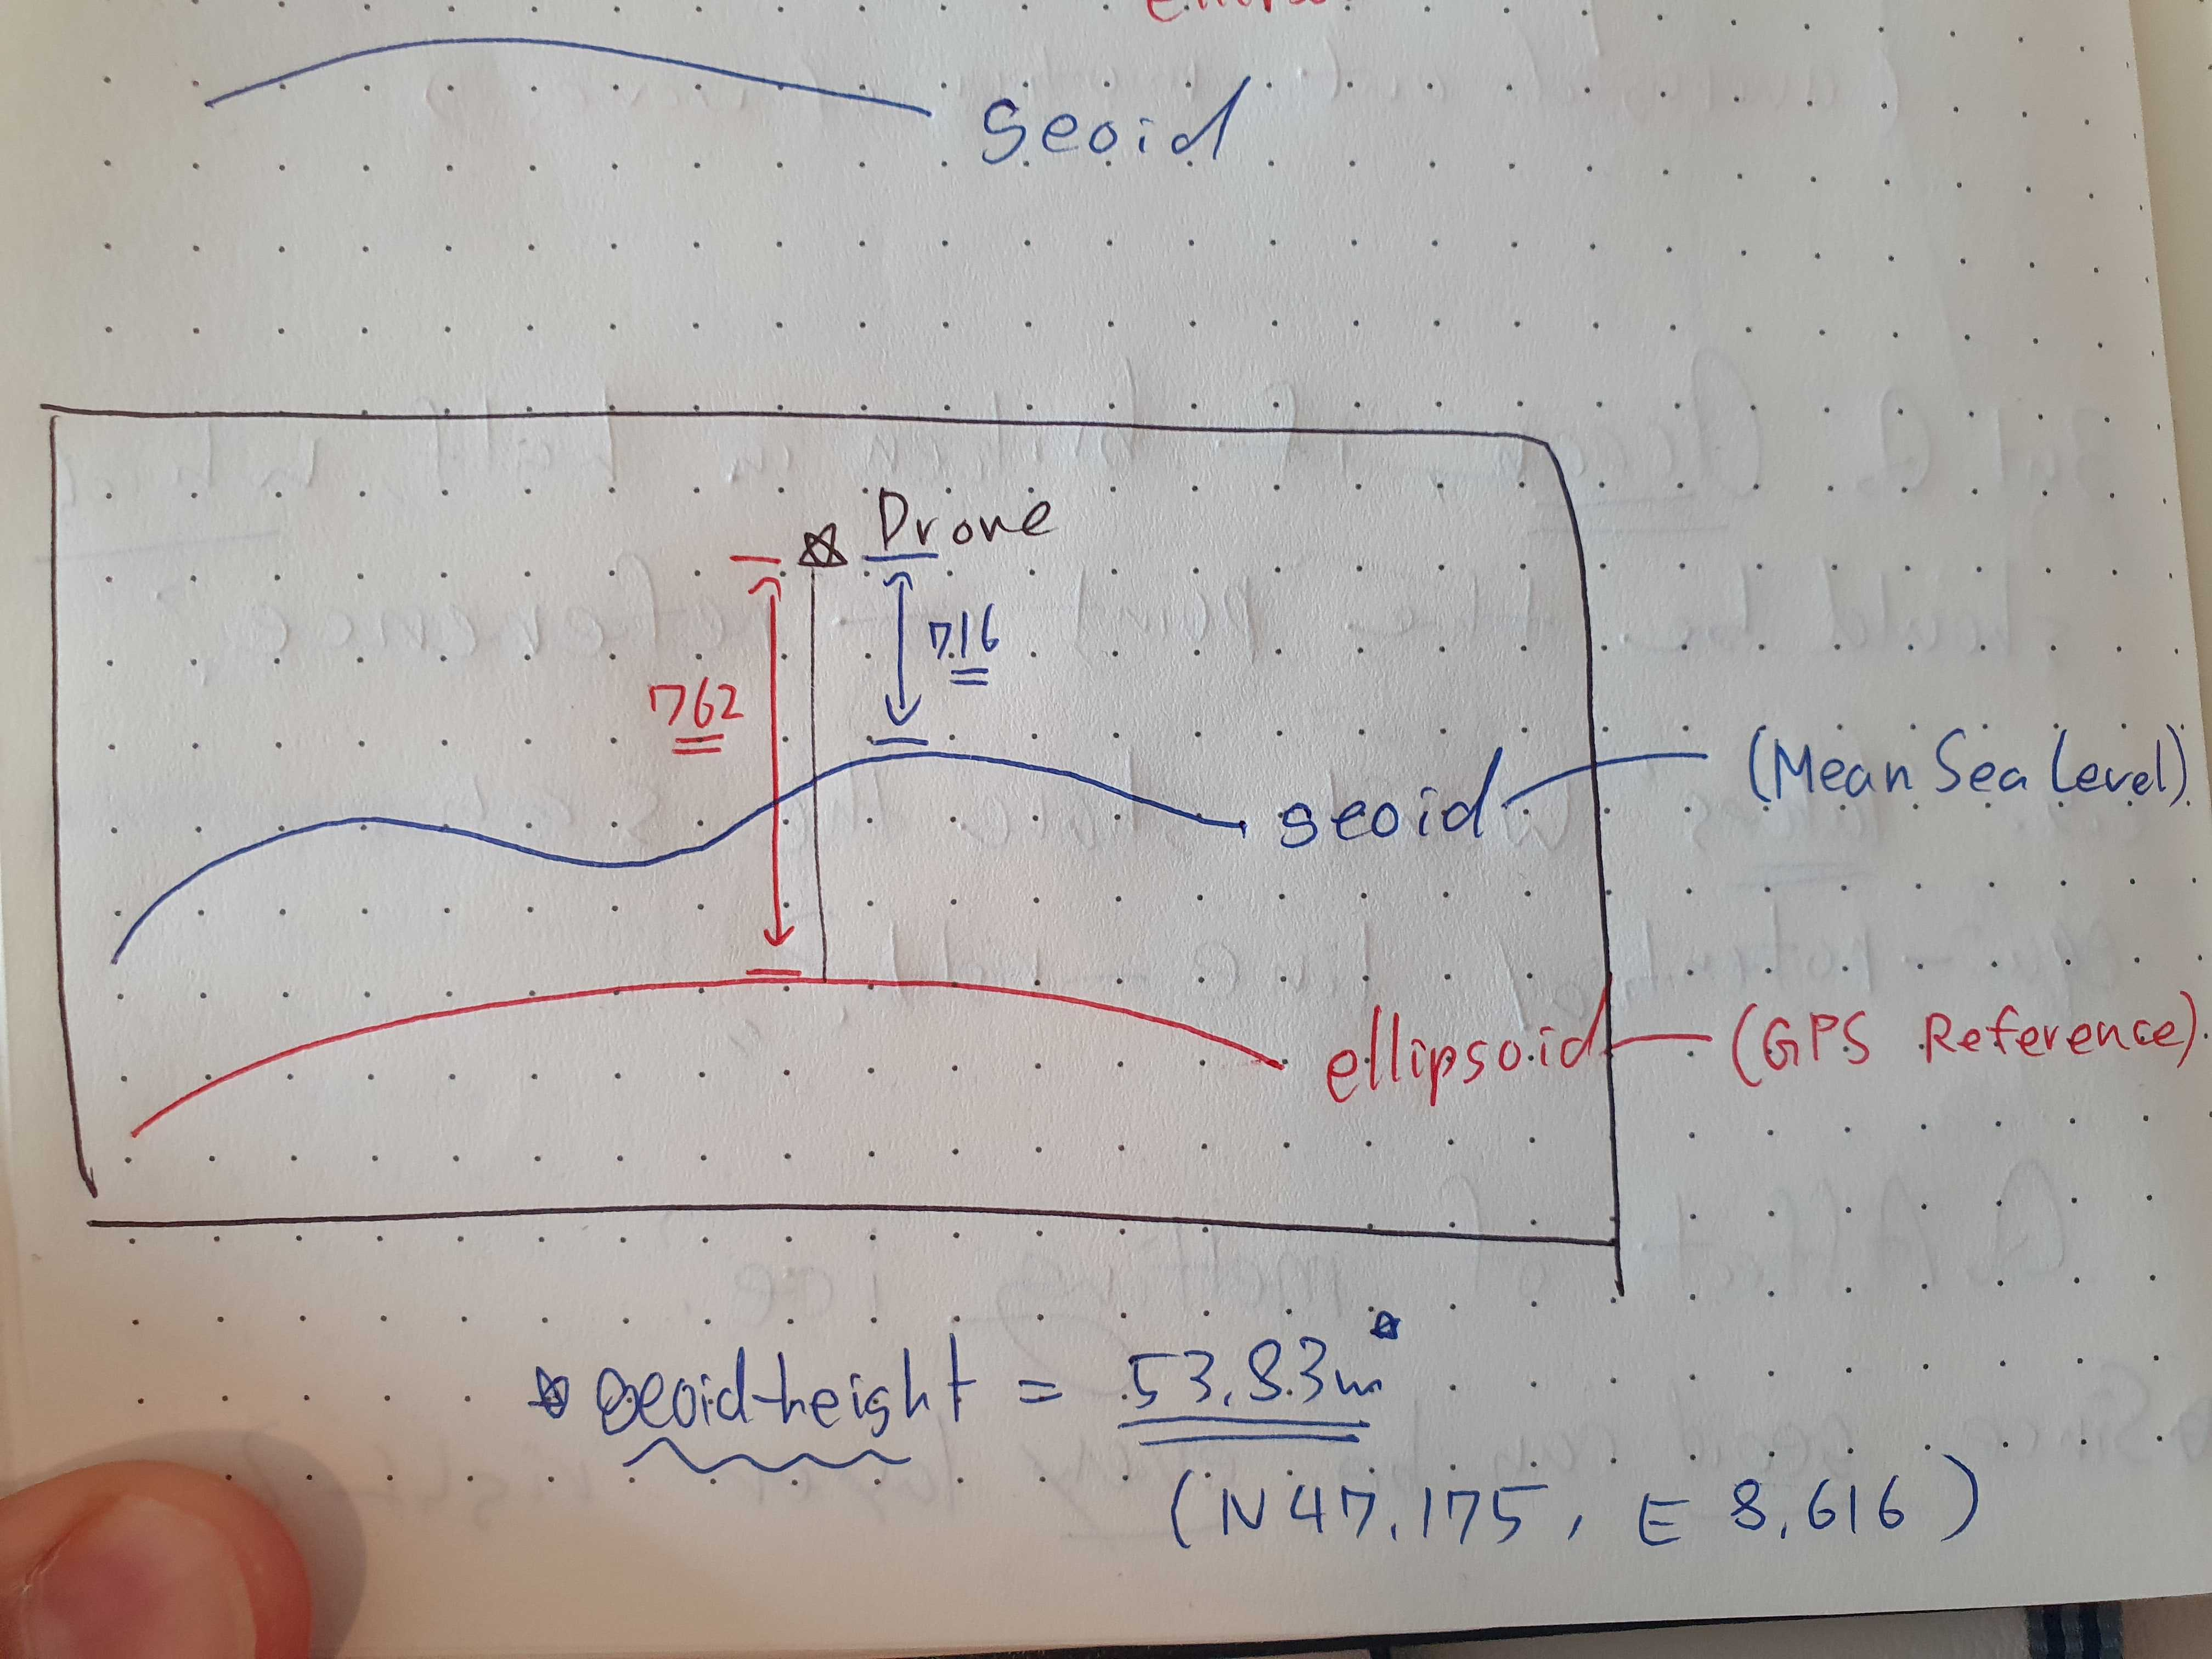 geoid
Drone
716
762
geoid (Mean Sea Level)
ellipsoid (GPS Reference)
☆ Geoid-height = 53.83m☆
(N47.175, E 8.616)